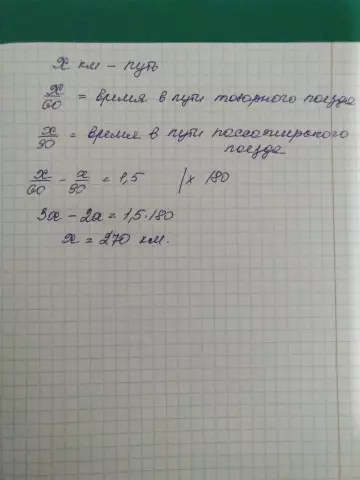 x км – путь
x/60 = время в пути товарного поезда
x/90 = время в пути пассажирского
поезда
x/60 - x/90 = 1,5 /× 180
3x - 2x = 1,5·180
x = 270 км.